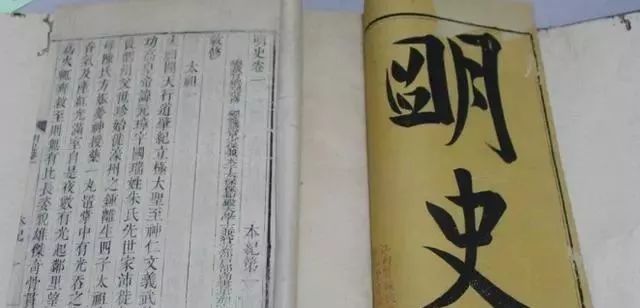 明史
明史卷一
本紀第一
敕修
太祖一
太祖開天行道肇紀立極大聖至神仁文義武
功高皇帝諱元璋字國瑞姓朱氏先世家沛徙
父世珍始徙濠州之鍾離生四子太祖
母陳氏方娠夢神授藥一丸置掌中有光吞之
香氣及產紅光滿室自是夜數有光起鄰里望
為火輒奔救至則無有比長姿貌雄傑奇骨貫
本紀